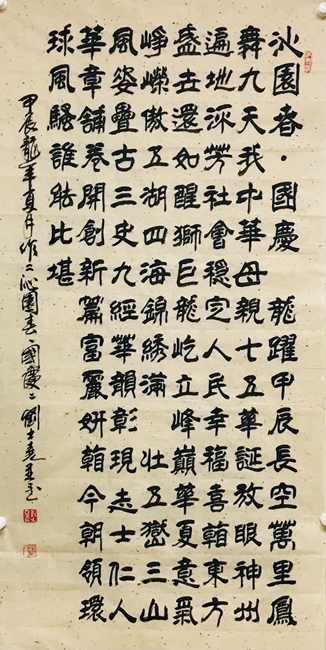 沁園春·國慶 龍躍甲辰長空萬里鳳
舞九天我中華母親七五華誕放眼神州
遍地流芳社會穩定人民幸福喜看東方
盛世還如醒獅巨龍屹立峰巔華夏意氣
崢嶸傲五湖四海錦綉滿 壯五嶽三山
風姿疊古三史九經華韻彰現志士仁人
華章鋪卷開創新篇富麗妍看今朝領環
球風騷誰能比堪
甲辰龍年夏月作沁園春國慶 劉士堯